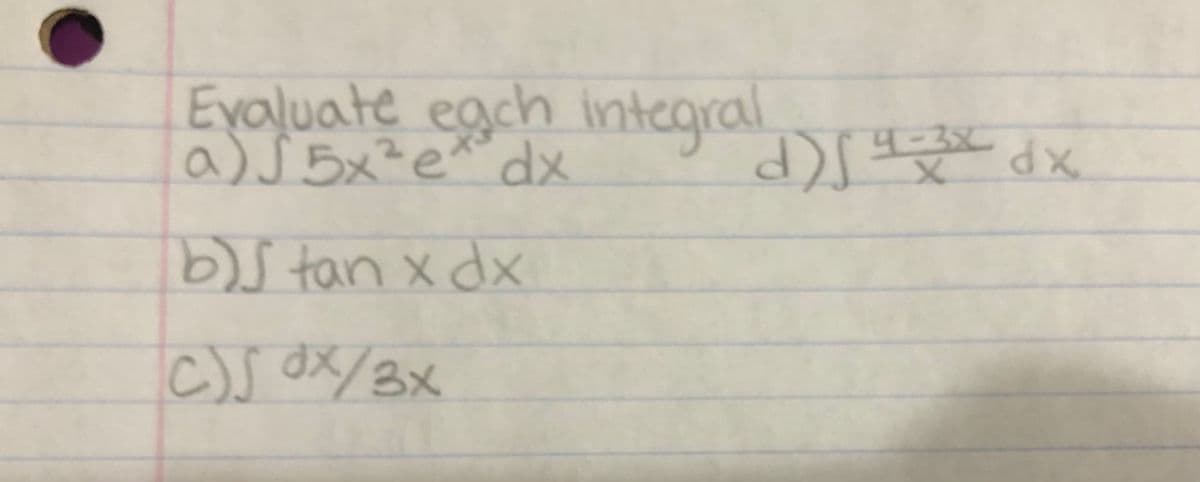 Evaluate each integral
a) ∫ 5x²eˣ³ dx
d) ∫ 4-3x/x dx
b) ∫ tan x dx
c) ∫ dx/3x